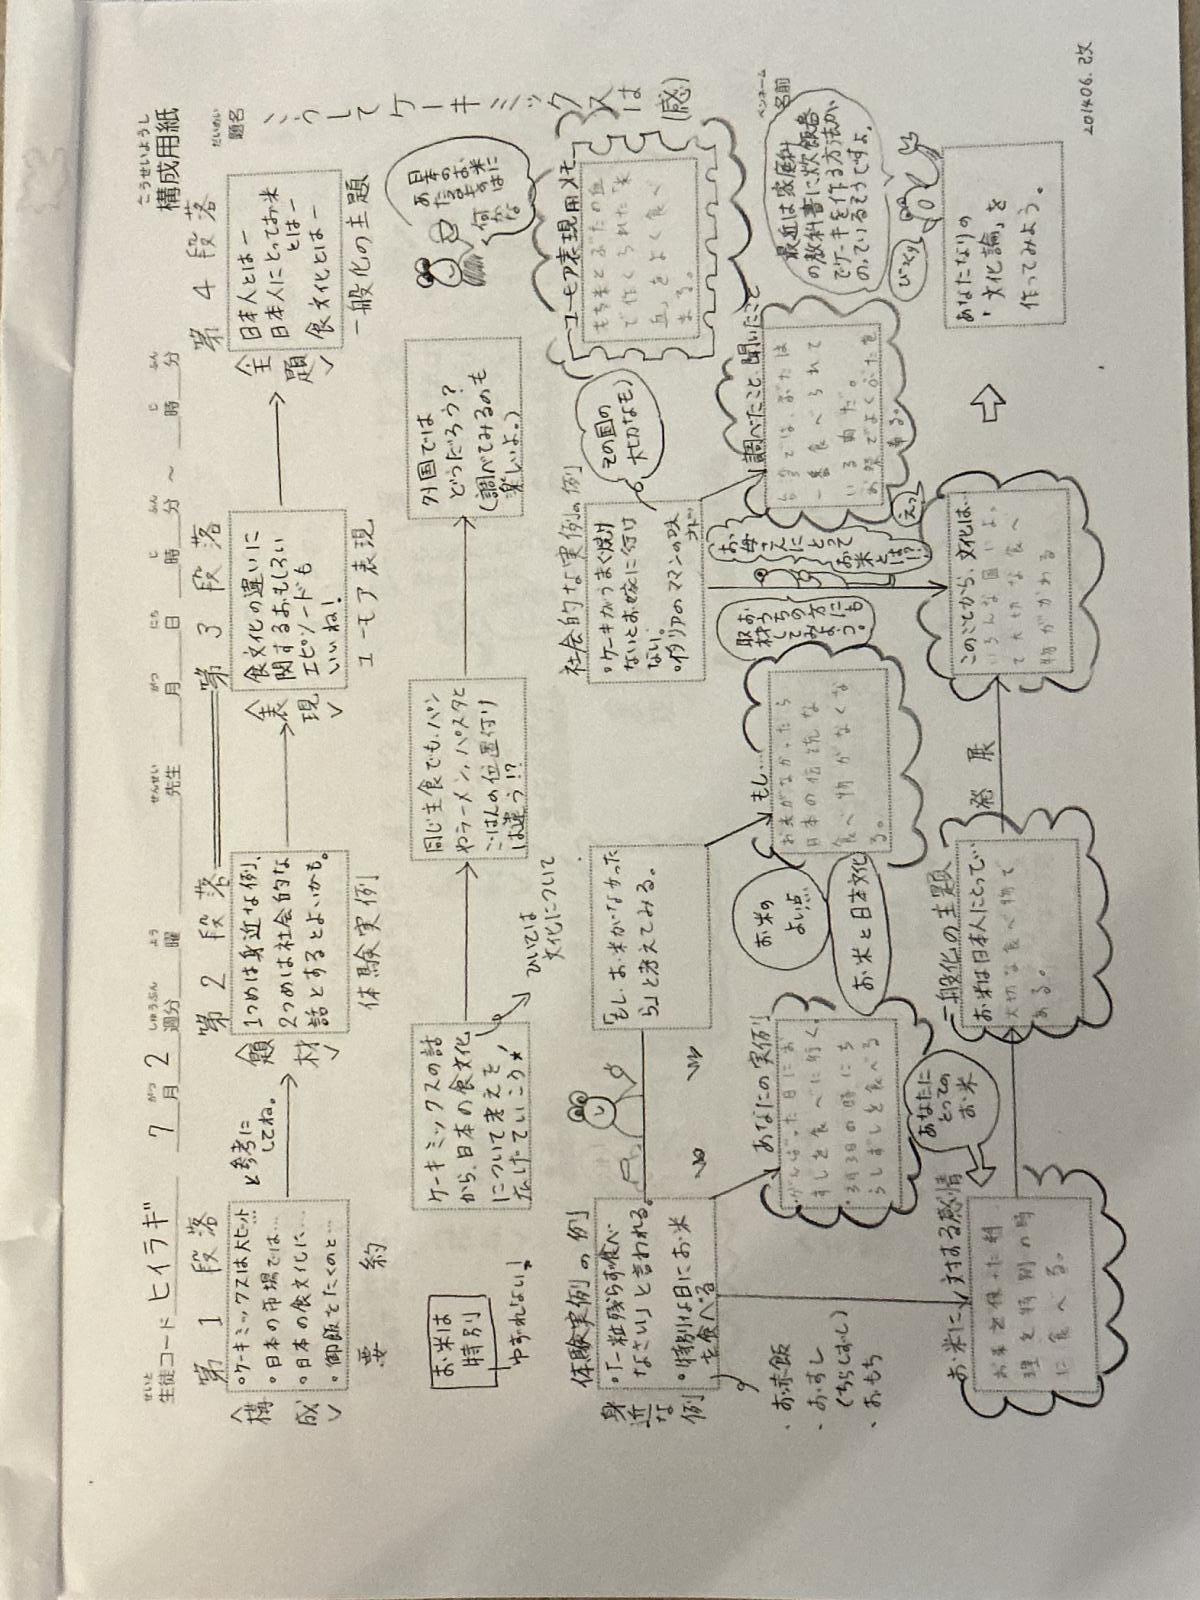 こうせいようし
構成用紙
だいめい
題名
こうしてケーキミックスは(感)
ペンネーム
名前
せいと
生徒コード ヒイラギ
7 がつ 月 2 しゅうぶん 週分 よう 曜
せんせい
先生
がつ 月 にち 日 じ 時 ふん 分 ~ じ 時 ふん 分
第1段落
<構成>
・ケーキミックスは大ヒット…
・日本の市場では…
・日本の食文化に…
・御飯をたくのと…
要約
と参考に
してね。
第2段落
<題材>
1つめは身近な例、
2つめは社会的な
話とするとよいかも。
体験実例
第3段落
<表現>
食文化の違いに
関するおもしろい
エピソードも
いいね!
ユーモア表現
第4段落
<主題>
日本人とはー
日本人にとってお米
とはー
食文化とはー
一般化の主題
お米は
特別
ゆずれない!
ケーキミックスの話
から、日本の食文化
について考えを
広げていこう★
ひいては
文化について
同じ主食でも、パン
やラーメン、パスタと
ごはんの位置付け
は違う!?
外国では
どうだろう?
(調べてみるのも
楽しいよ。)
日本の
お米は
何かな
体験実例の例
身近な例
・「一粒残らず食べ
なさい」と言われる。
・特別な日にお米
を食べる
・お赤飯
・おすし
(ちらしずし)
・おもち
「もし、お米がなかった
ら」と考えてみる。
社会的な実例の例
・ケーキがうまく焼け
ないとお嫁に行け
ない。
・イタリアのママンの味
その国の
大切なもの
ユーモア表現用メモ
もち米とぶたの血
で作くられた「米
血」をよく食べ
まる。
あなたの実例
・がんばった日にお
すしを食べに行く。
・3月3日の時にち
らしずしを食べる
お米の
よい点
お米と日本文化
もし…
お米がなかったら
日本の伝統な
食べ物がなくな
る。
お母さんにとって
お米とは!?
えっ
おうちの方にも
取材してみよう。
調べたこと 聞いたこと
台湾では、ぶたは
一番食べられて
いる肉だ。
お祭でよくぶたを
最近は家庭科
の教科書に炊飯器
でケーキを作る方法が
のっているそうですよ。
びっくり
お米に対する感情
お米を使った料
理を特別の時
に食べる。
あなたに
とっての
お米
一般化の主題
お米は日本人にとって…
大切な食べ物で
ある。
発展
このことから、文化は…
いろんな国によっ
て大切な食べ
物がかわる
あなたなりの
「文化論」を
作ってみよう。
201406.改